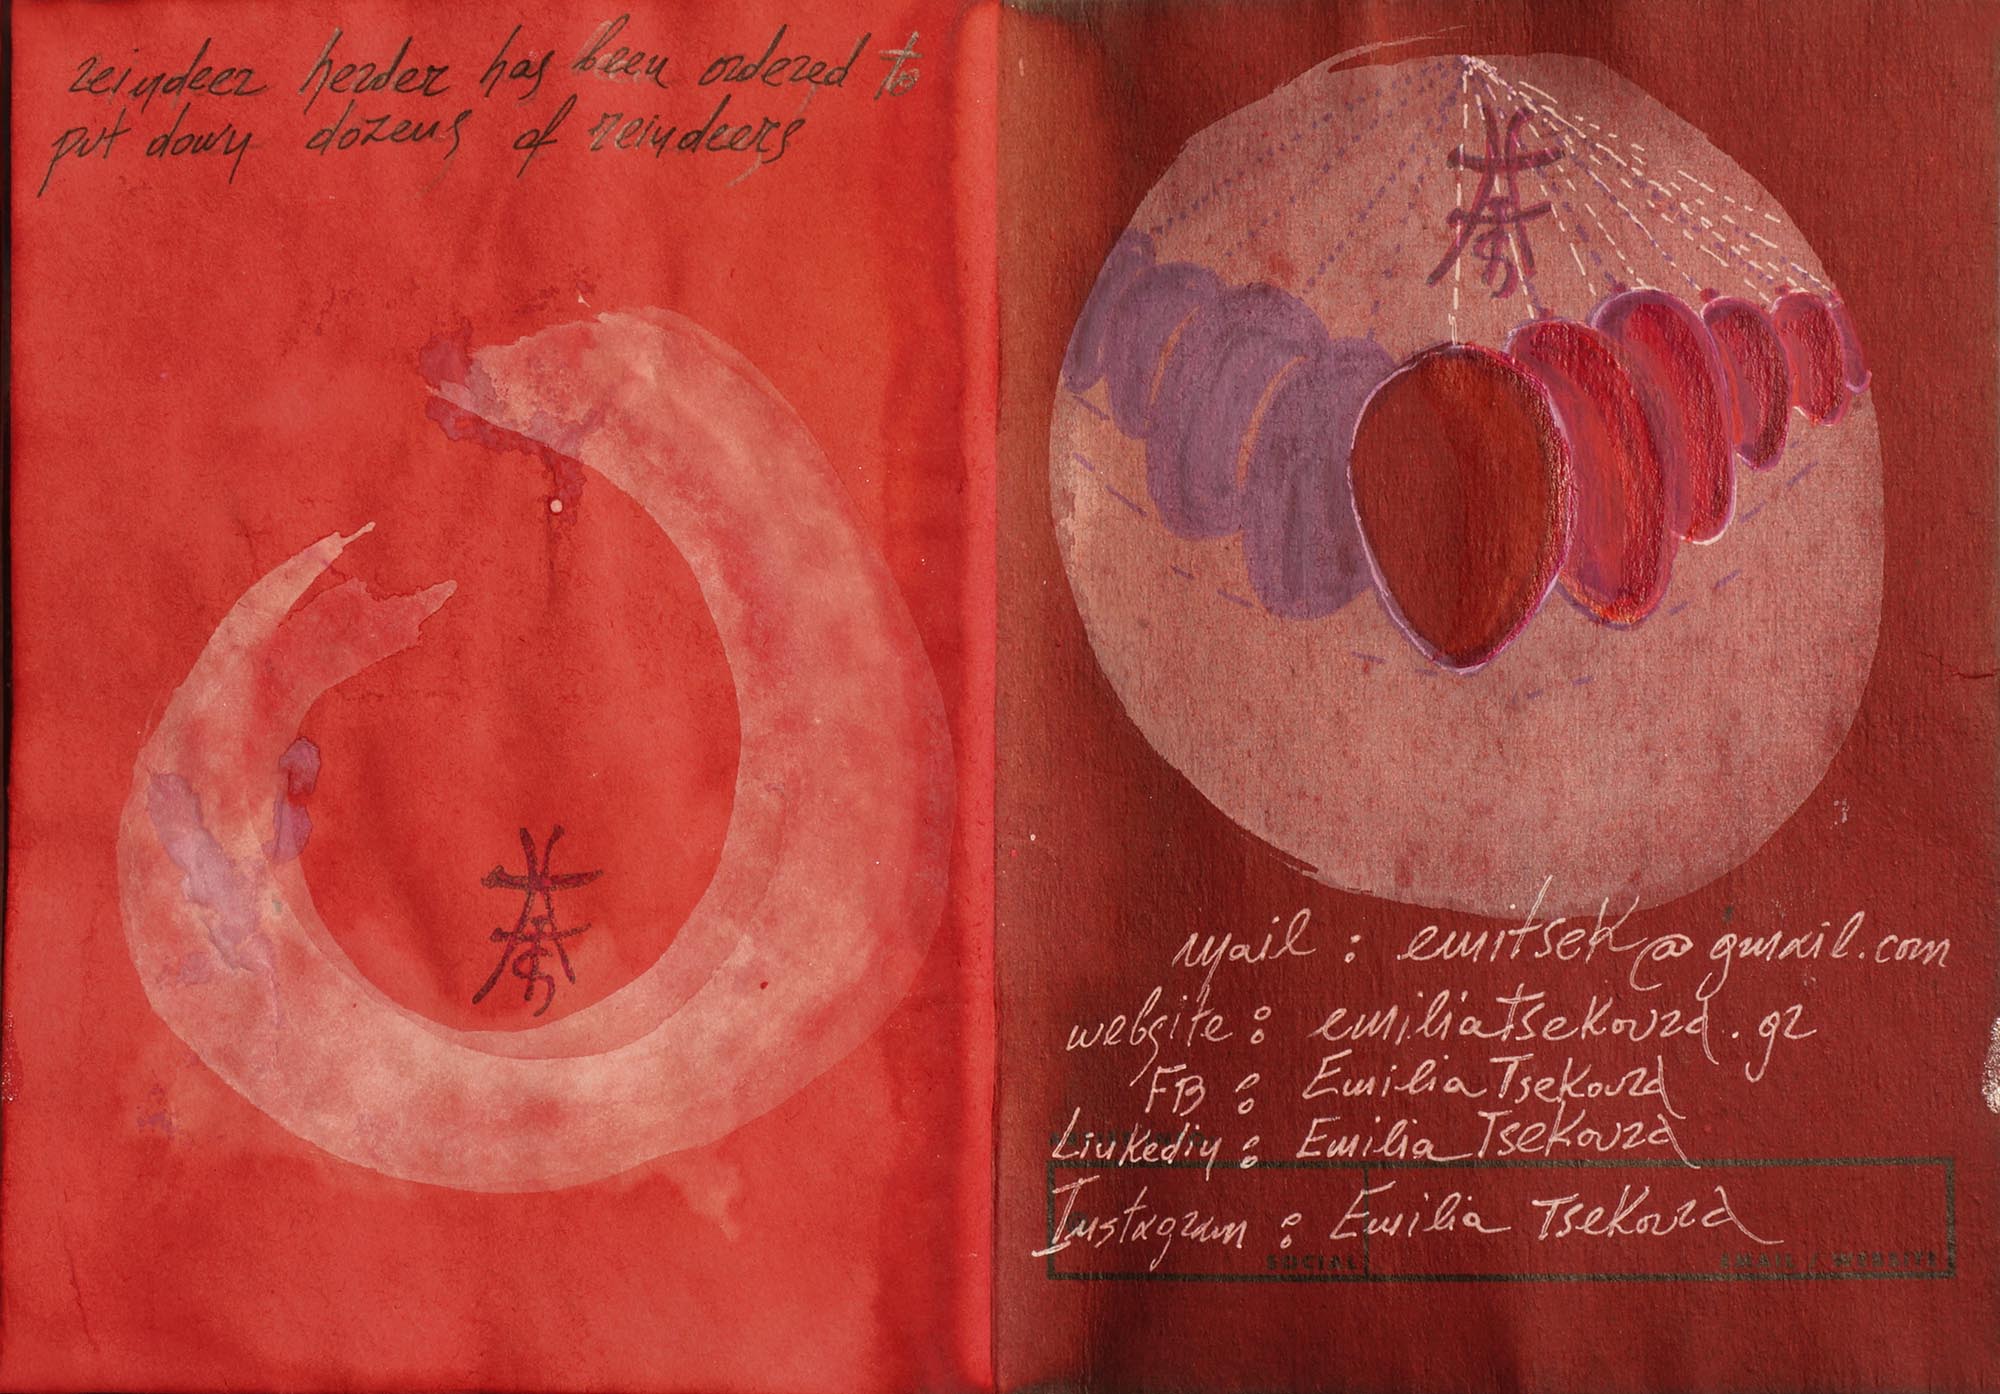 reindeer herder has been ordered to
put down dozens of reindeers
mail : emitsek@gmail.com
website : emiliatsekoura.gr
FB : Emilia Tsekoura
Linkedin : Emilia Tsekoura
Instagram : Emilia Tsekoura
SOCIAL
EMAIL / WEBSITE